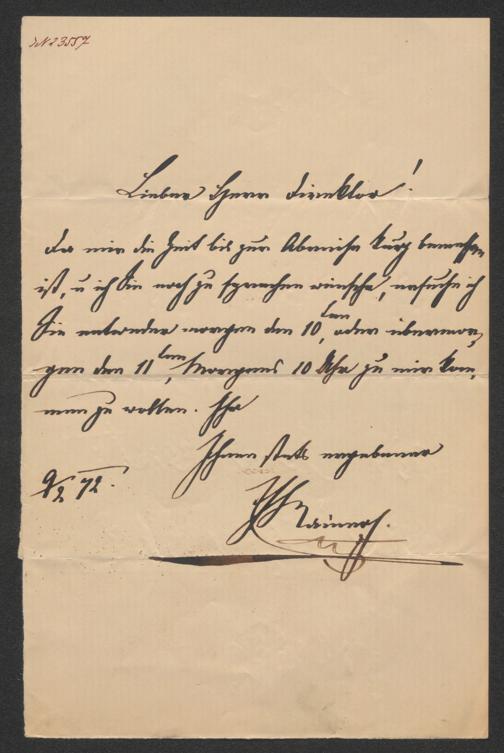 IN 23557
Lieber Herr Direktor!
Da mir die Zeit bis zur Abreise kurz bemessen
ist, u ich Sie noch zu sprechen wünsche, ersuche ich
Sie entweder morgen den 10ten, oder übermor-
gen den 11ten, Morgens 10 Uhr zu mir kom-
men zu wollen.
Ihnen stets ergebener
9/2 72.